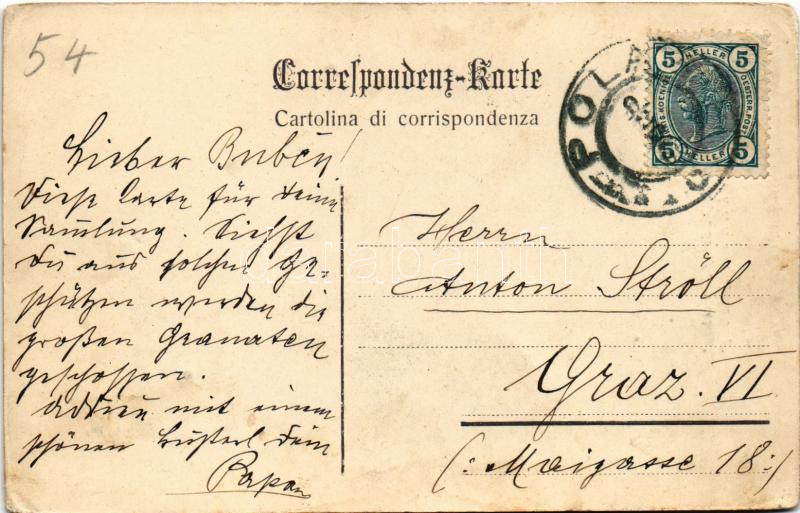 54
Correspondenz-Karte
Cartolina di corrispondenza
5 HELLER 5
OESTERR. POST
5 HELLER 5
POLA
Lieber Bubi!
Diese Carte für Deine
Samlung. Siehst
Du aus solchen Ge-
schützen werden die
großen Granaten
geschossen.
Adieu mit einem
schönen Busserl Dein
Papa
Herrn
Anton Ströll
Graz. VI
(: Maigasse 18 :)
darabanth